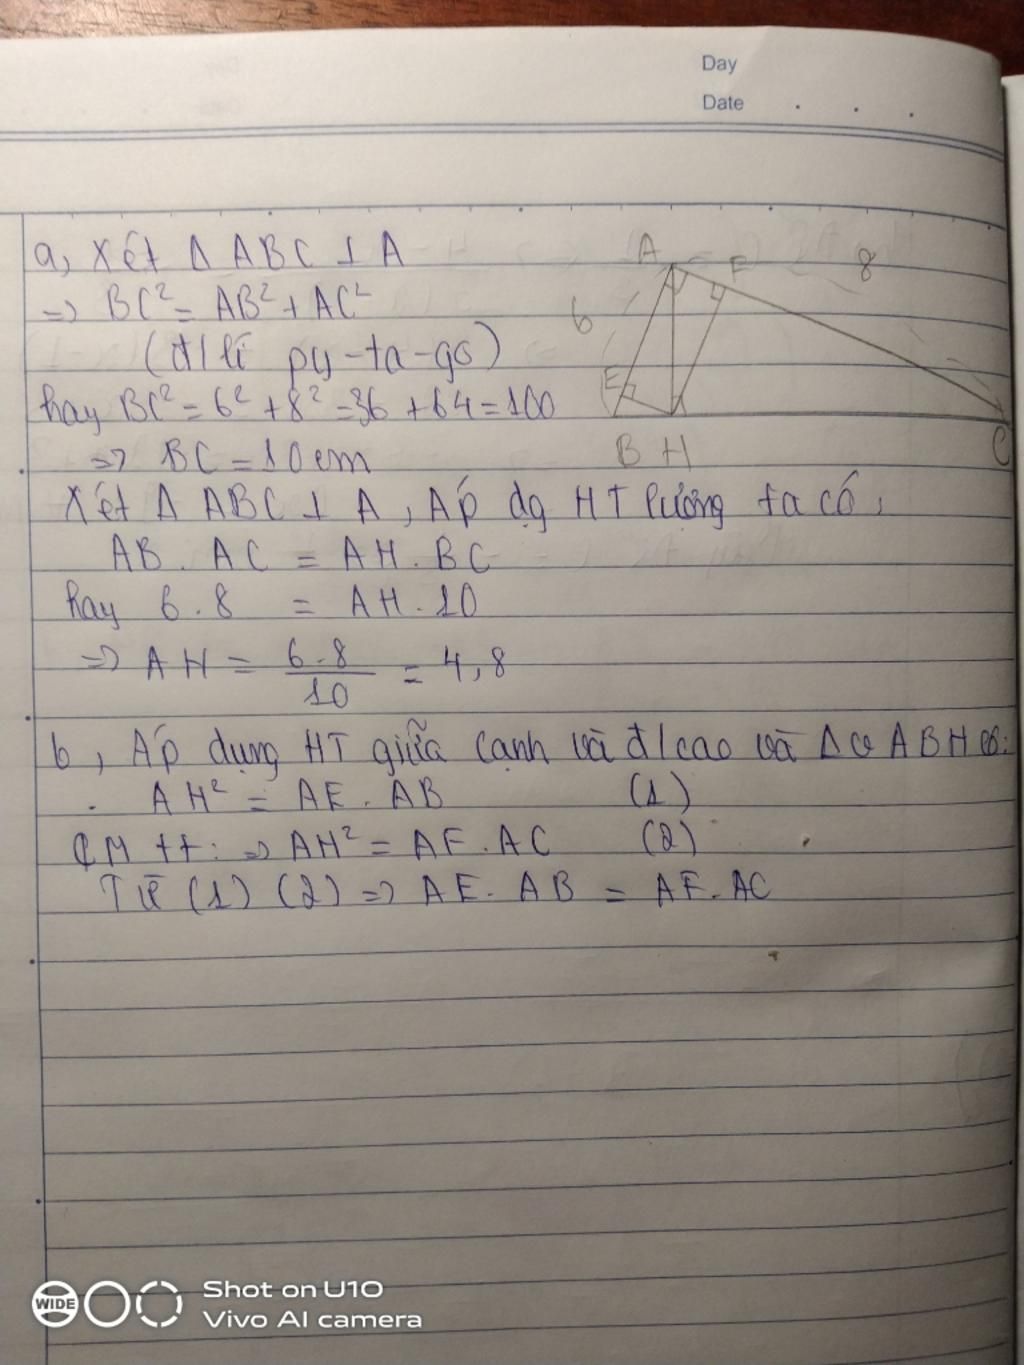 Day
Date
a, Xét Δ ABC ⊥ A
=> BC² = AB² + AC²
(đ/lí py-ta-go)
hay BC² = 6² + 8² = 36 + 64 = 100
=> BC = 10cm
A
F
8
6
E
B H
C
Xét Δ ABC ⊥ A, Áp dg HT lượng ta có,
AB. AC = AH. BC
hay 6.8 = AH. 10
=> AH = 6.8/10 = 4,8
b, Áp dụng HT giữa cạnh và đ/cao và Δ ABH có:
AH² = AE. AB (1)
CM tt: => AH² = AF. AC (2)
Từ (1) (2) => AE. AB = AF. AC
WIDE
Shot on U10
Vivo AI camera